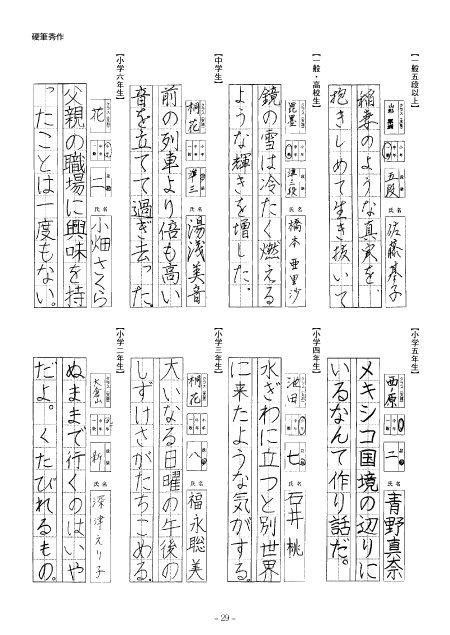 硬筆秀作
【一般五段以上】
五段
佐藤基子
稲妻のような真実を
抱きしめて生き抜いて
【一般・高校生】
昆墨
準三段
橋本亜里沙
鏡の雪は冷たく燃える
ような輝きを増した。
【中学生】
桐花
準三
湯浅美音
前の列車より倍も高い
音を立てて過ぎ去った。
【小学六年生】
花
一
小畑さくら
父親の職場に興味を持
ったことは一度もない。
【小学五年生】
西ノ原
二
青野真奈
メキシコ国境の辺りに
いるなんて作り話だ。
【小学四年生】
池田
七
石井桃
水ぎわに立つと別世界
に来たような気がする。
【小学三年生】
桐花
八
福永聡美
大いなる日曜の午後の
しずけさがたちこめる。
【小学二年生】
大倉山
新
深津えり子
ぬままで行くのはいや
だよ。くたびれるもの。
- 29 -